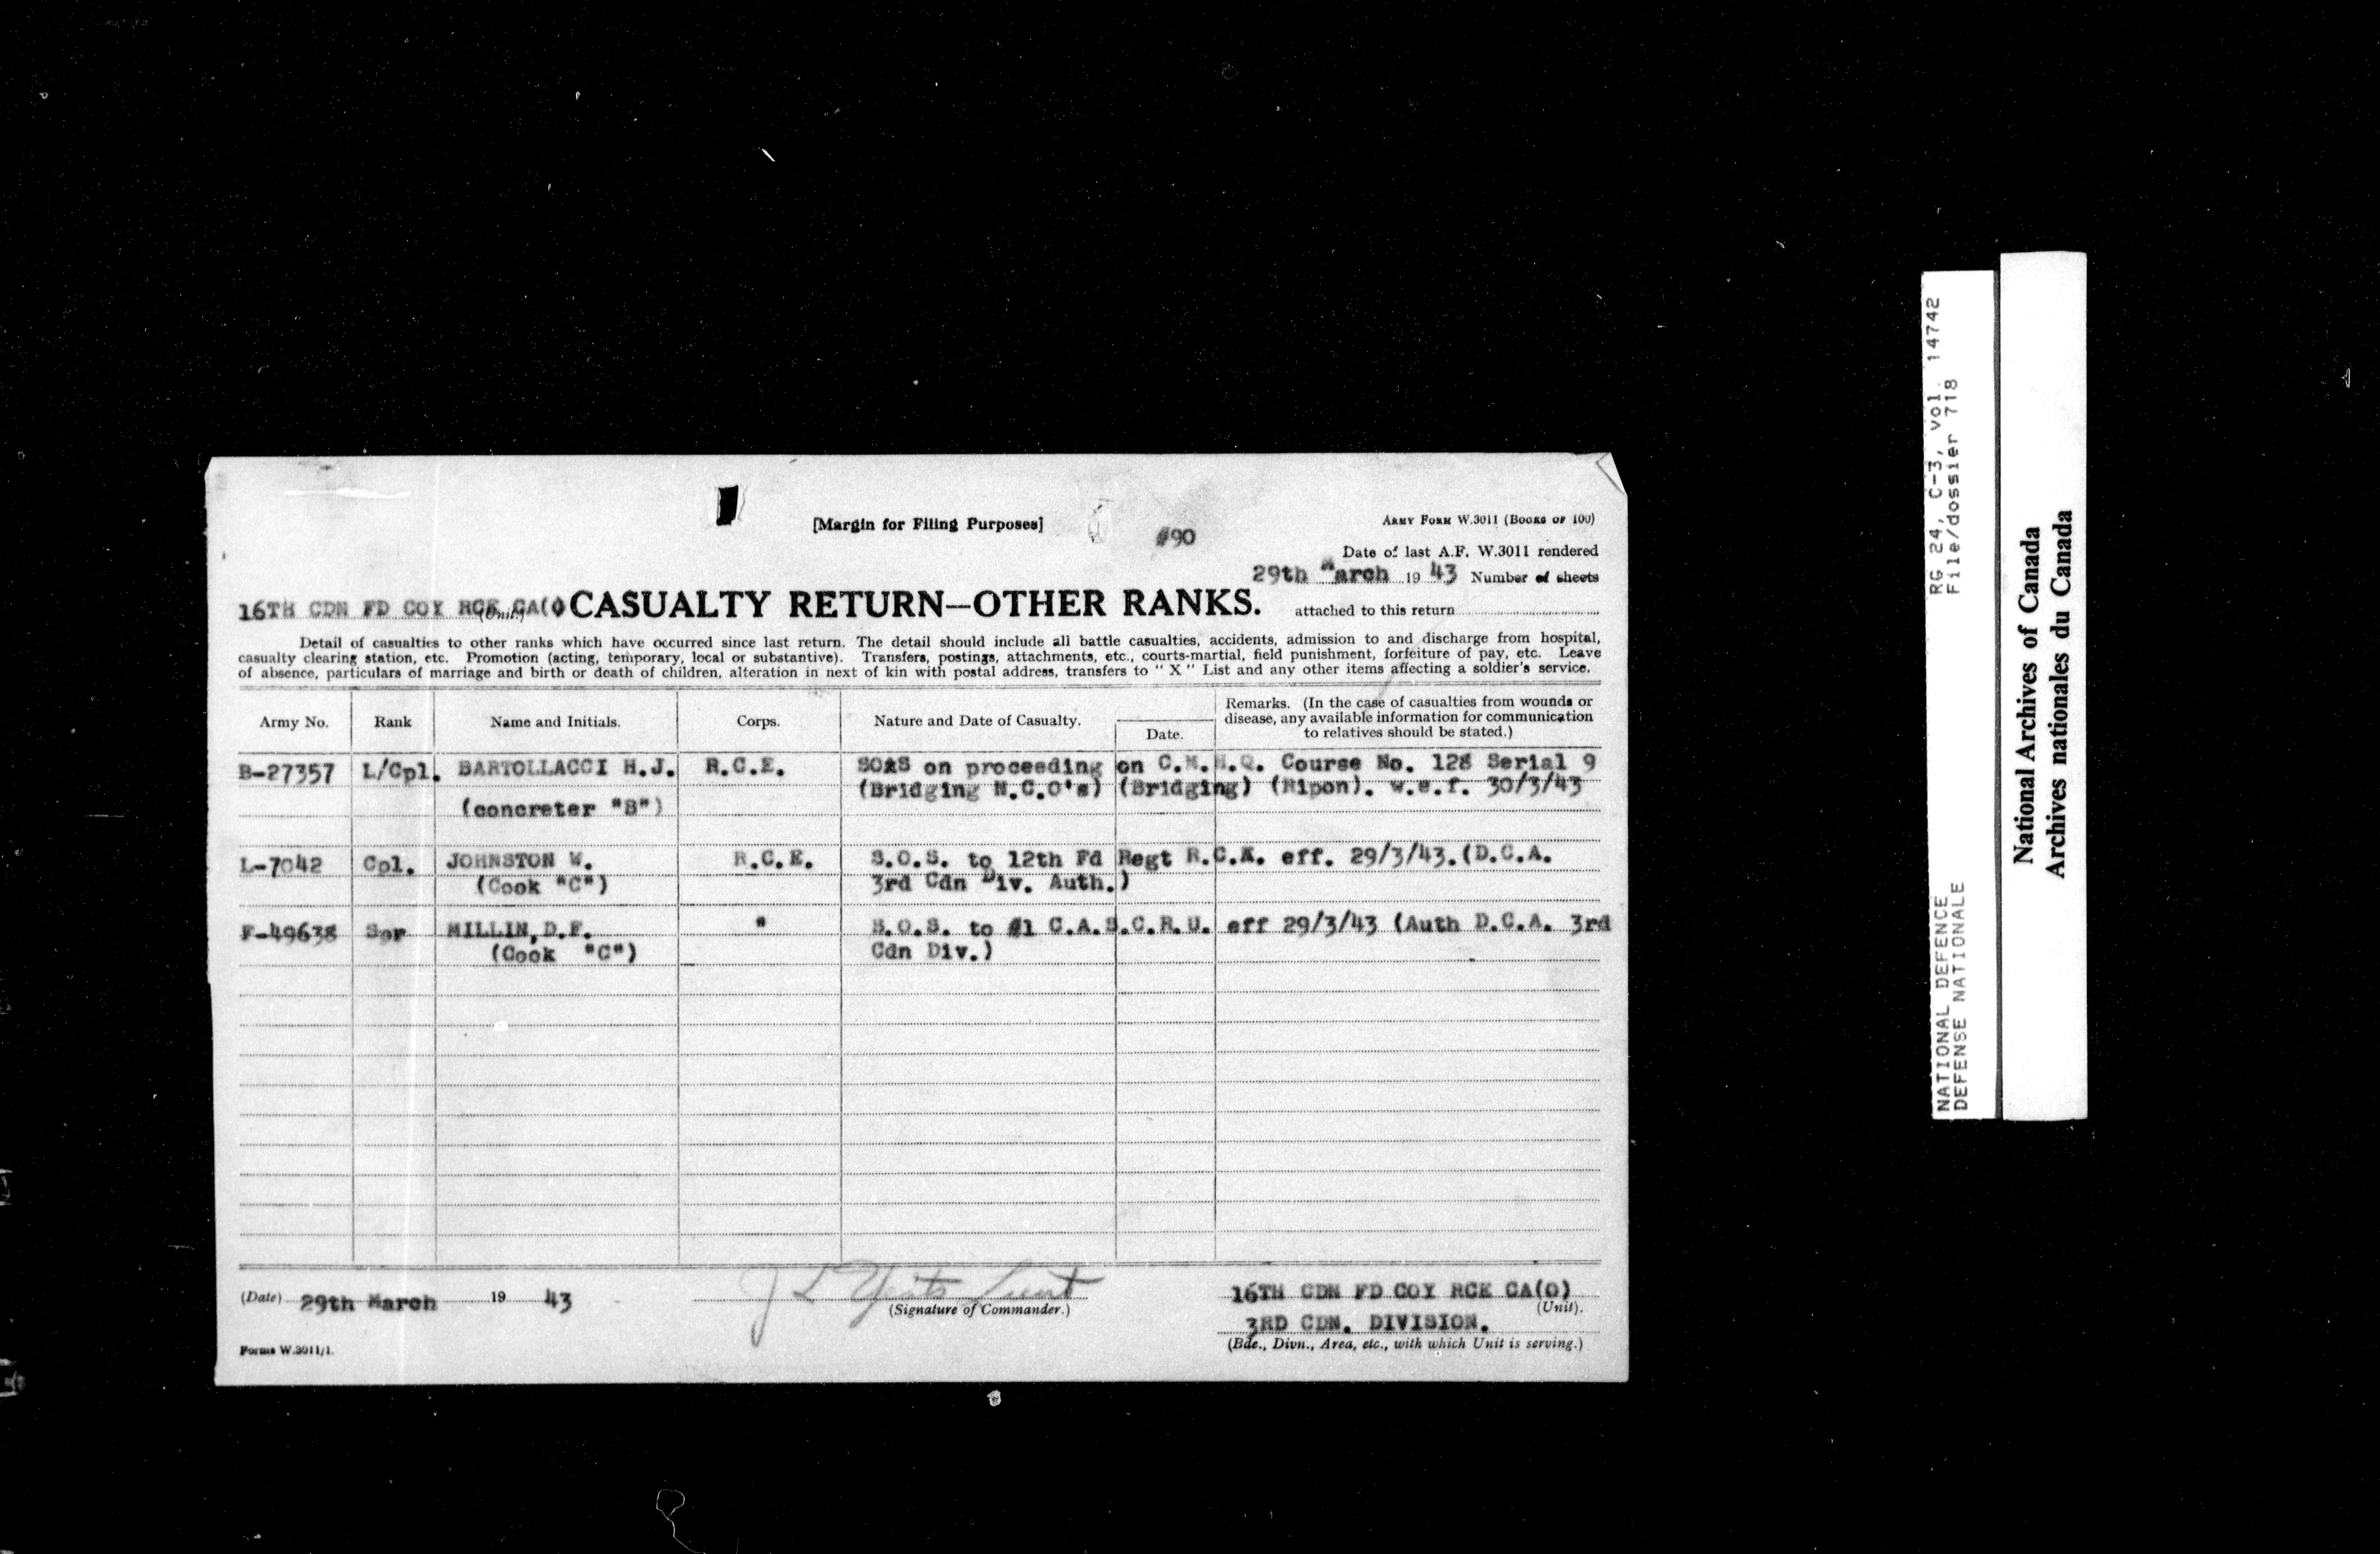 [Margin for Filing Purposes]
#90
ARMY FORM W.3011 (BOOKS OF 100)
Date of last A.F. W.3011 rendered
29th March 19 43 Number of sheets
attached to this return
16TH CDN FD COY RCE CA(O
(Unit)
CASUALTY RETURN—OTHER RANKS.
Detail of casualties to other ranks which have occurred since last return. The detail should include all battle casualties, accidents, admission to and discharge from hospital,
casualty clearing station, etc. Promotion (acting, temporary, local or substantive). Transfers, postings, attachments, etc., courts-martial, field punishment, forfeiture of pay, etc. Leave
of absence, particulars of marriage and birth or death of children, alteration in next of kin with postal address, transfers to " X " List and any other items affecting a soldier's service.
Army No. Rank Name and Initials. Corps. Nature and Date of Casualty. Date. Remarks. (In the case of casualties from wounds or
disease, any available information for communication
to relatives should be stated.)
B-27357 L/Cpl. BARTOLLACCI H.J. R.C.E. SOAS on proceeding on C.M.H.Q. Course No. 128 Serial 9
(Bridging N.C.O's) (Bridging) (Ripon). w.e.f. 30/3/43
(concreter "B")
L-7042 Cpl. JOHNSTON W. R.C.E. S.O.S. to 12th Fd Regt R.C.A. eff. 29/3/43.(D.C.A.
(Cook "C") 3rd Cdn Div. Auth.)
F-49638 Spr MILLIN, D.F. " S.O.S. to #1 C.A.S.C.R.U. eff 29/3/43 (Auth D.C.A. 3rd
(Cook "C") Cdn Div.)
(Date) 29th March 19 43
J L Lieut
(Signature of Commander.)
16TH CDN FD COY RCE CA(O)
(Unit).
3RD CDN. DIVISION.
(Bde., Divn., Area, etc., with which Unit is serving.)
Forms W.3011/1.
RG 24, C-3, vol. 14742
File/dossier 718
NATIONAL DEFENCE
DEFENSE NATIONALE
National Archives of Canada
Archives nationales du Canada